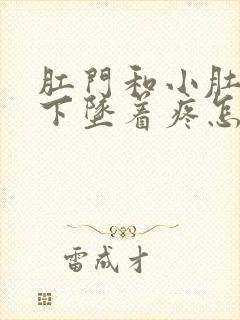 肛門和小肚
下墜着疼怎
雷成才